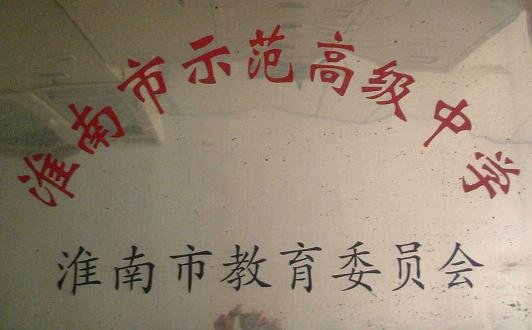 淮南市示范高级中学
淮南市教育委员会